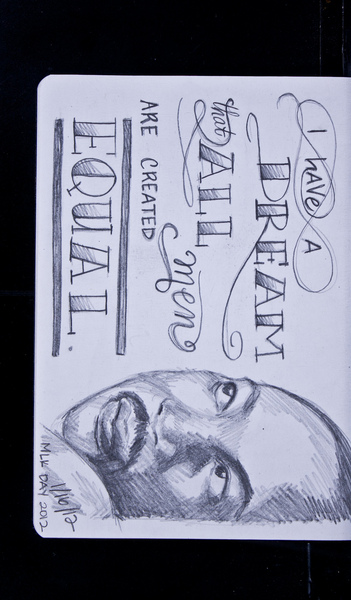 I HAVE A
DREAM
that ALL men
ARE CREATED
EQUAL.
1/16/12
MLK DAY 2012